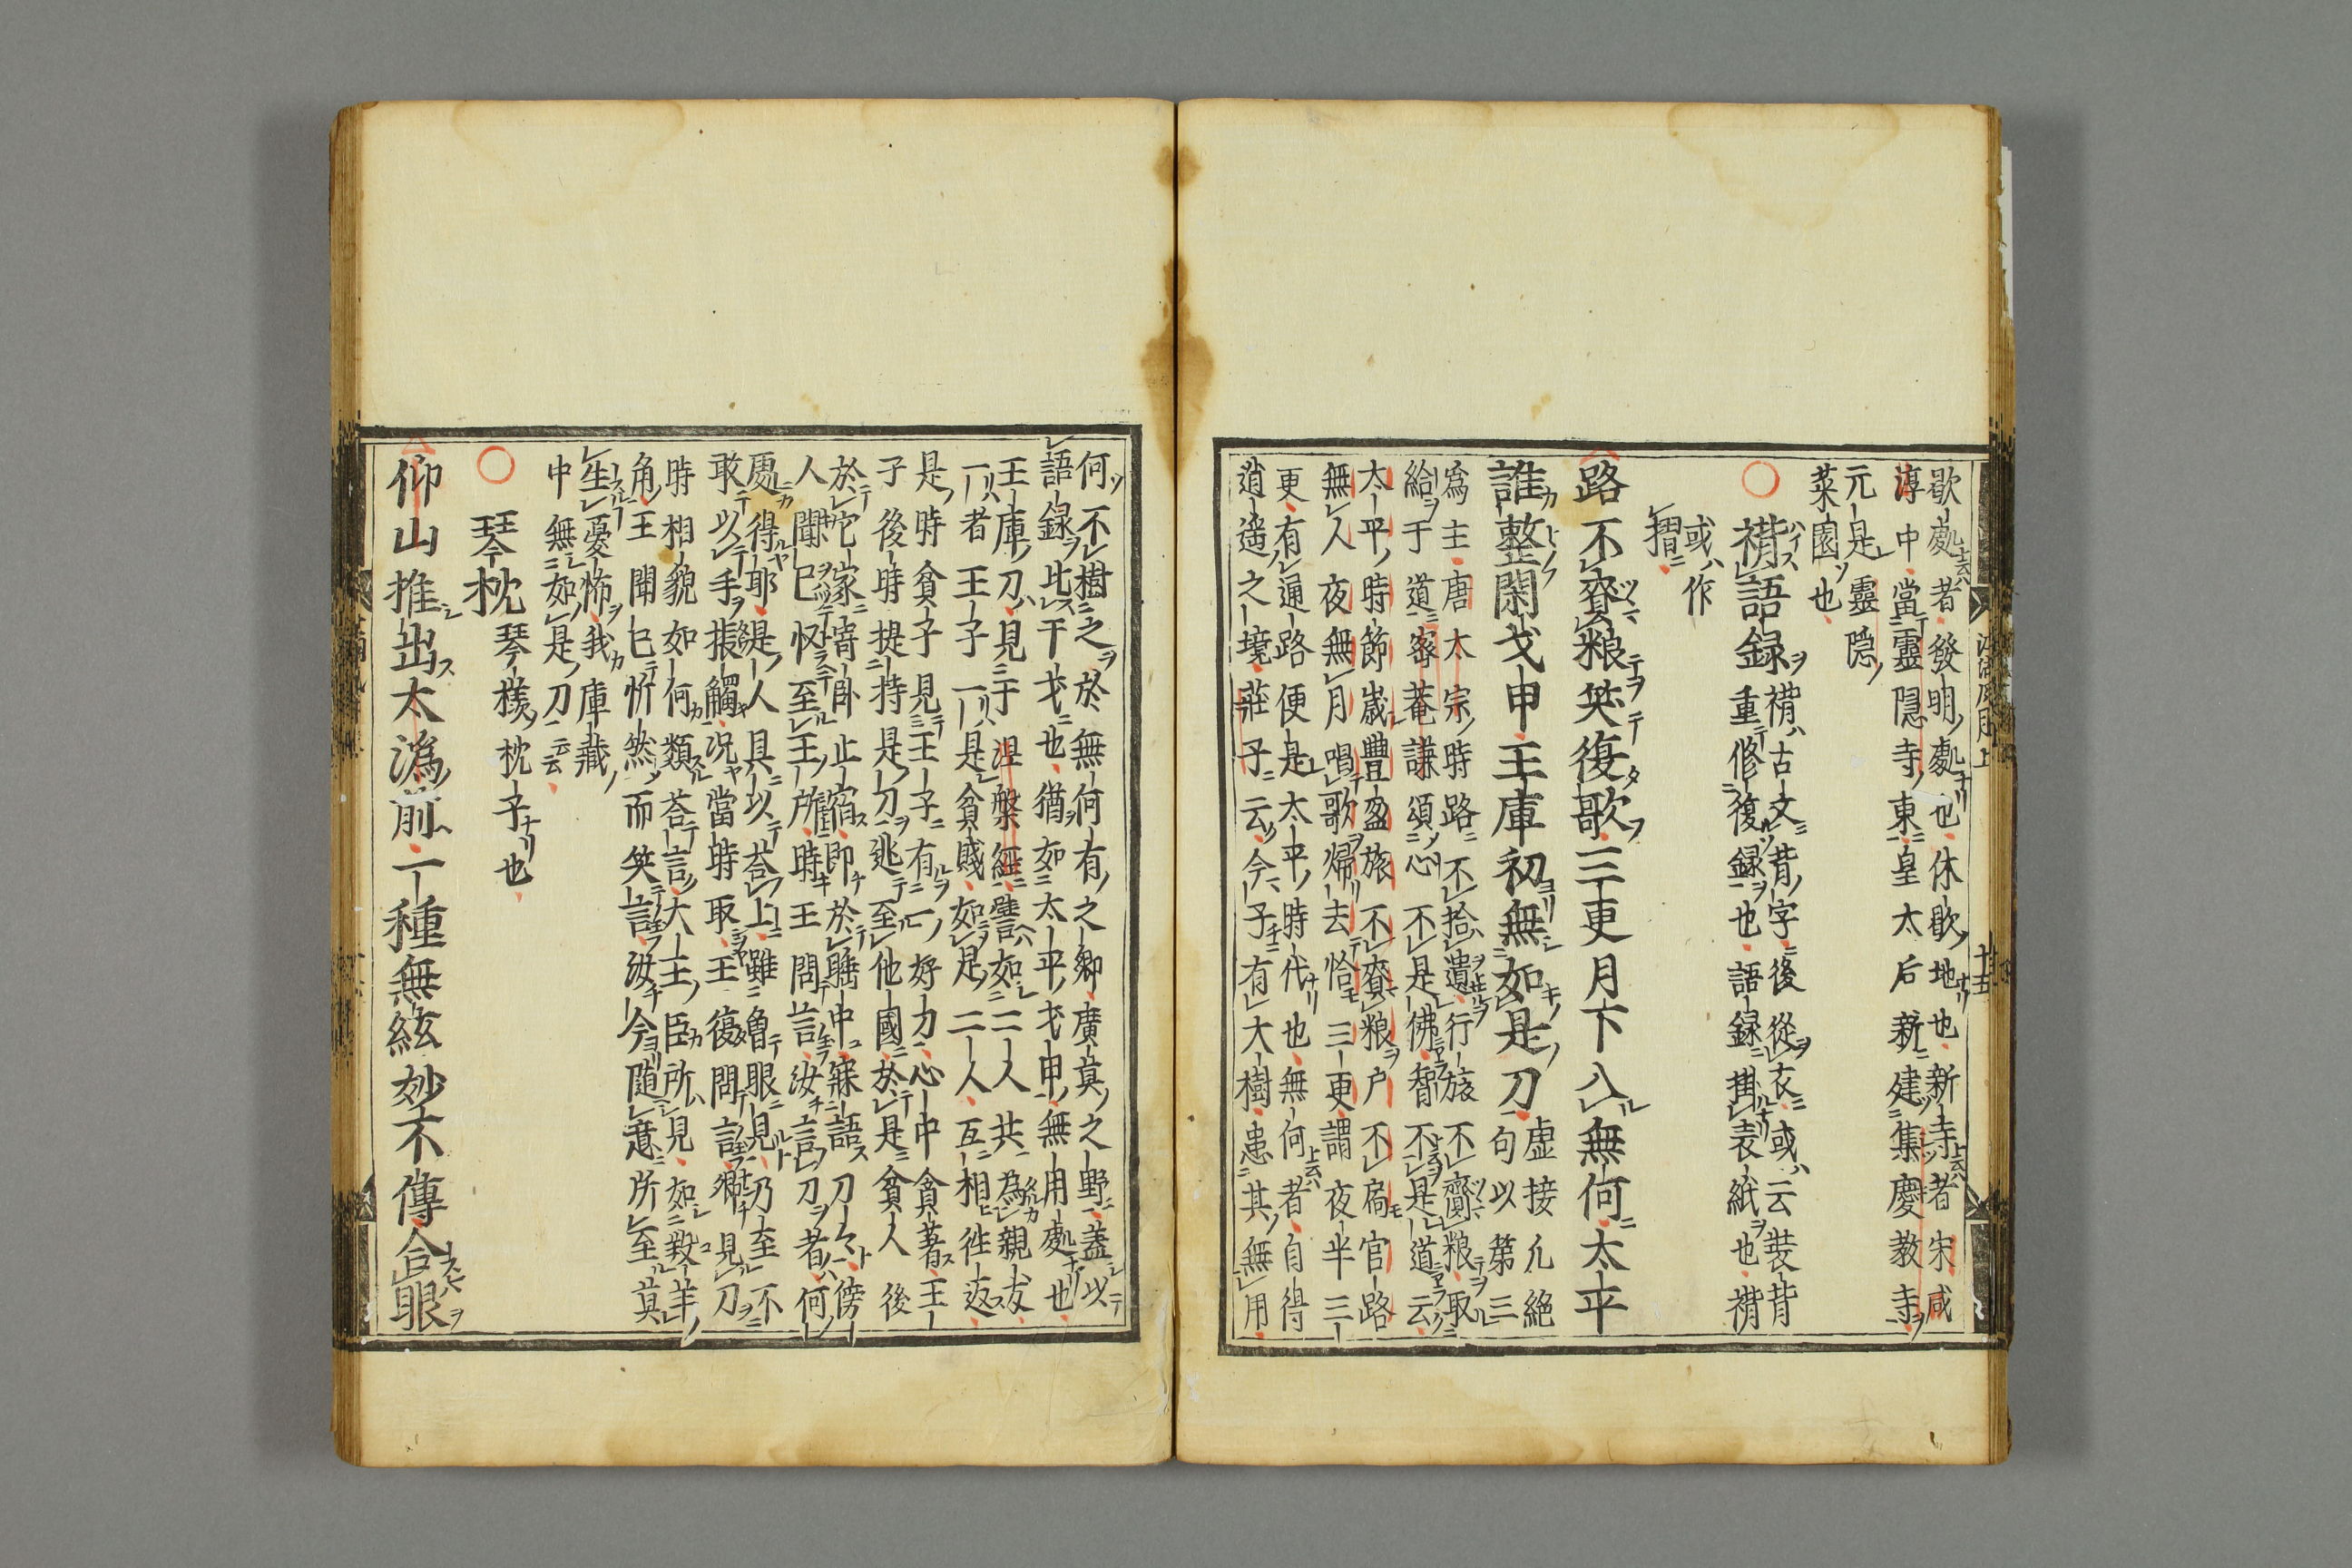 江湖風月上　十五
歇處者發明處也休歇地也新寺者宋咸
淳中當靈隱寺東皇太后新建集慶教寺
元是靈隠
菜園也
○褙語録　褙古文背字後從衣或云裝背
重修復録也語録掛表紙也褙
或作
摺
路不賷粮笑復歌三更月下入無何太平
誰整閑戈甲王庫初無如是刀　虚接凢絶
句以第三
爲主唐太宗時路不拾遺行旅不齎粮取
給于道密菴謙頌心不是佛智不是道云
太平時節歳豐盈旅不賷粮户不扃官路
無人夜無月唱歌歸去恰三更謂夜半三
更有通路便是太平時代也無何者自得
逍遥之境莊子云今子有大樹患其無用
何不樹之於無何有之鄉廣莫之野蓋以
語録比干戈也猶如太平戈甲無用處也
王庫刀見于涅槃經譬如二人共為親友
一者王子一是貧賎如是二人互相徃返
是時貧子見王子有一好刀心中貪著王
子後時提持是刀逃至他國於是貧人後
於它家寄臥止宿即於睡中寐語刀々傍
人聞已收至王所時王問言汝言刀者何
處得耶是人具以荅上雖魯眼見乃至不
敢以手掁觸况當時取王復問言卿見刀
時相貌如何類荅言大王臣所見如羖羊
角王聞已忻然而笑言汝今随意所至莫
生憂怖我庫藏
中無如是刀云云
○琴枕　琴樣枕子也
仰山推出太溈前一種無絃妙不傳合眼